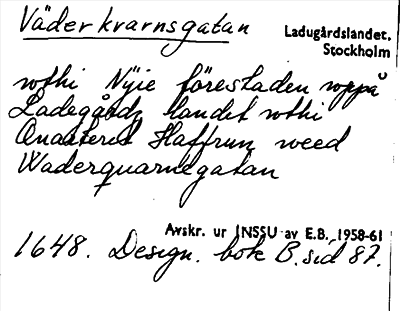 Väderkvarnsgatan
Ladugårdslandet,
Stockholm
wthi Nyie förestaden wppå
Ladegårdz landet wthi
Quaateret Haffrun weed
Waderquarnegatan
Avskr. ur INSSU av E.B. 1958-61
1648. Design. bok B. sid 87.